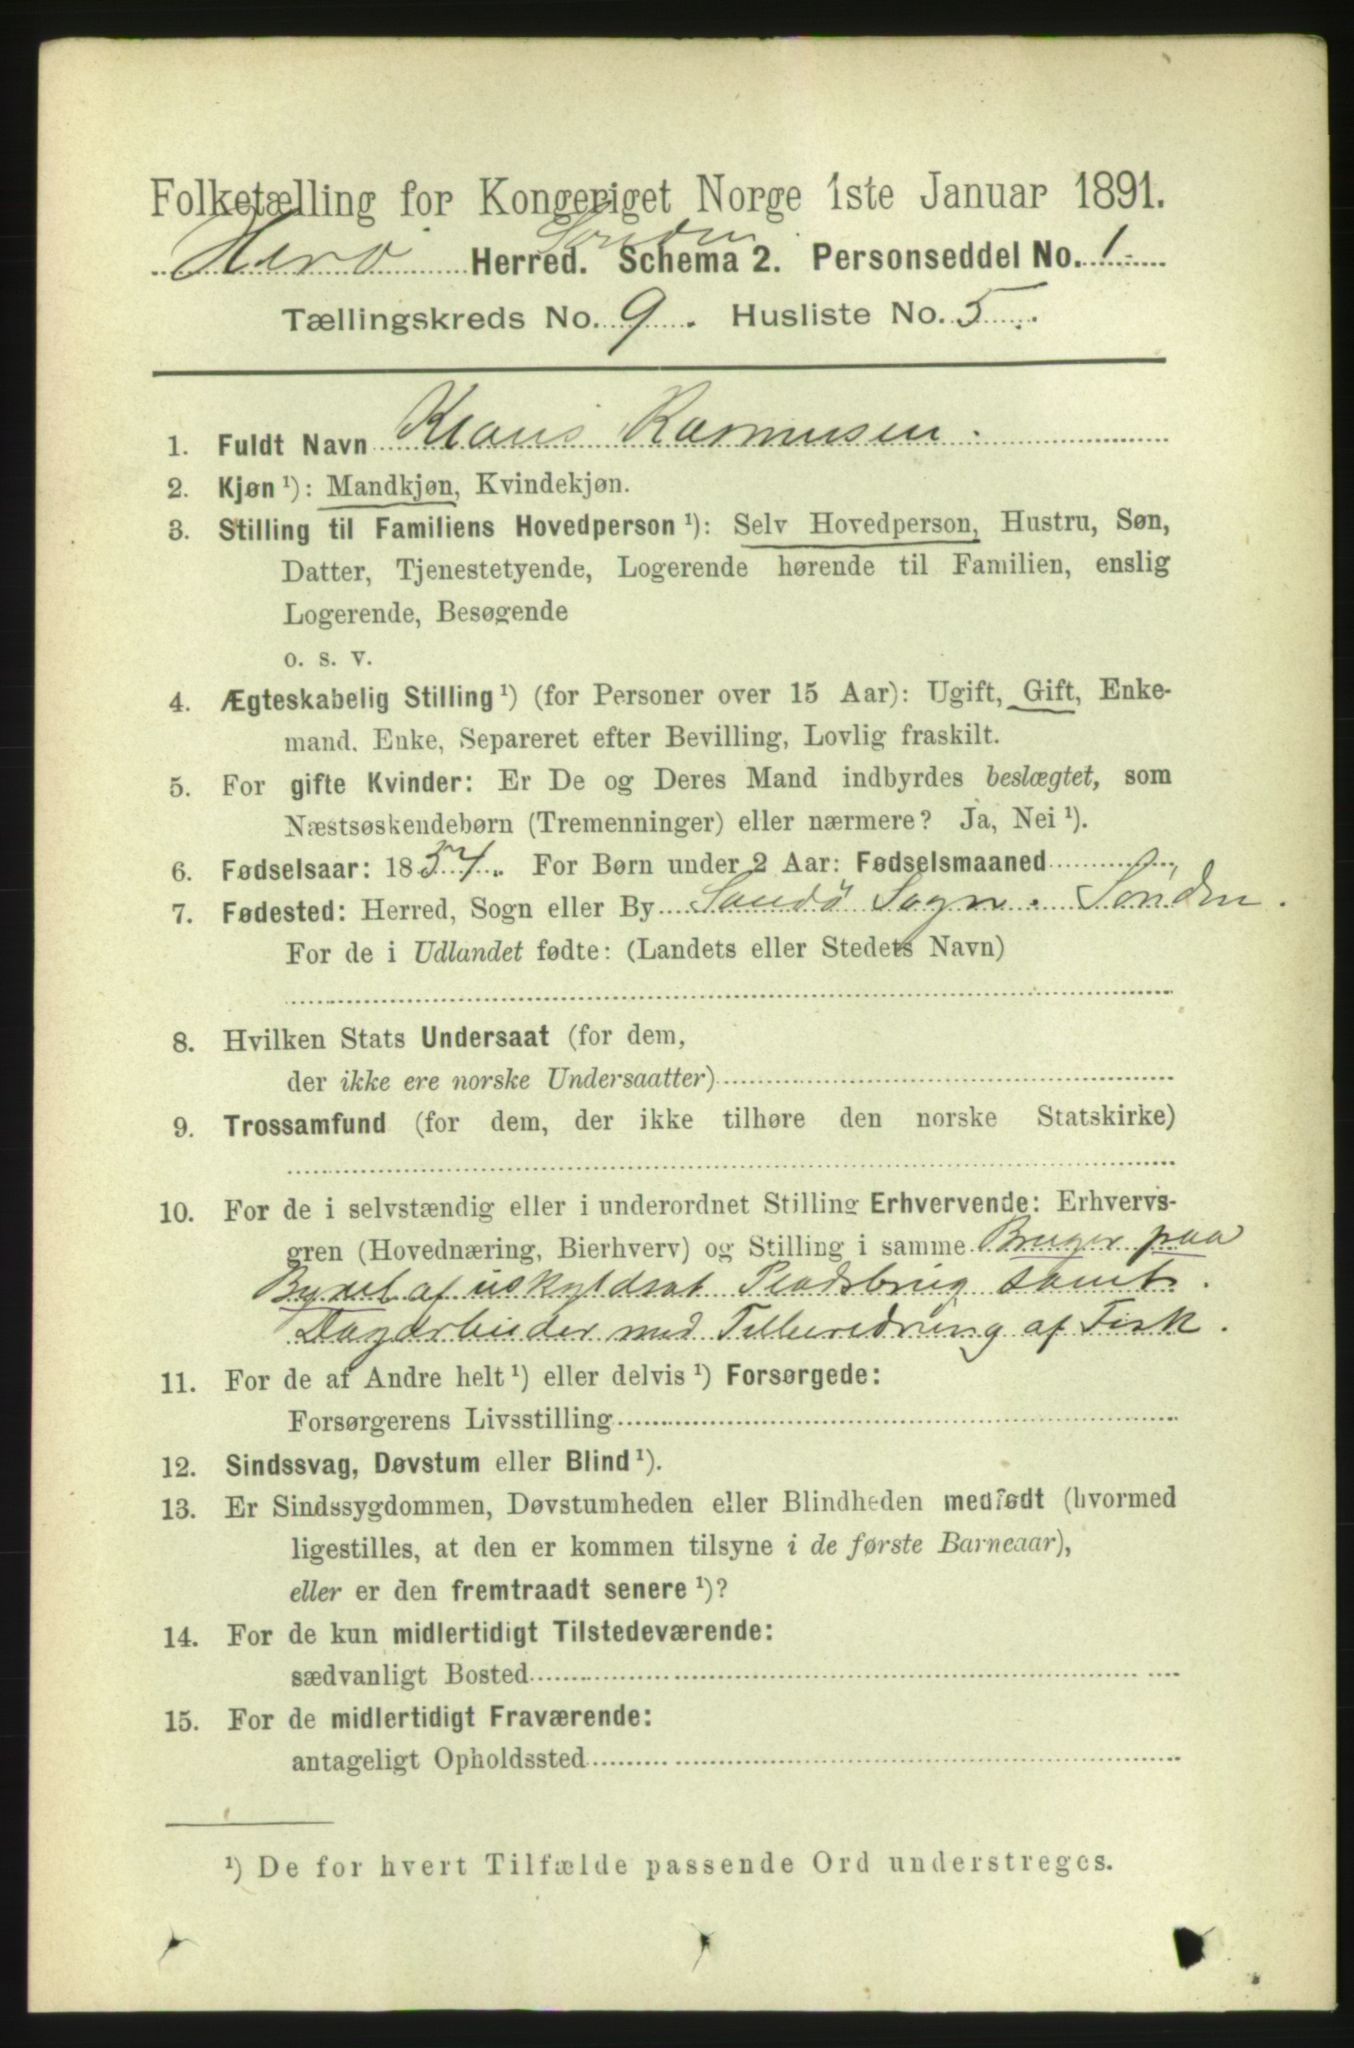 Folketælling for Kongeriget Norge 1ste Januar 1891.
Herø Søndm Herred. Schema 2. Personseddel No. 1
Tællingskreds No. 9. Husliste No. 5.
1. Fuldt Navn Klaus Rasmussen.
2. Kjøn ¹): Mandkjøn, Kvindekjøn.
3. Stilling til Familiens Hovedperson ¹): Selv Hovedperson, Hustru, Søn,
Datter, Tjenestetyende, Logerende hørende til Familien, enslig
Logerende, Besøgende
o. s. v.
4. Ægteskabelig Stilling ¹) (for Personer over 15 Aar): Ugift, Gift, Enke-
mand, Enke, Separeret efter Bevilling, Lovlig fraskilt.
5. For gifte Kvinder: Er De og Deres Mand indbyrdes beslægtet, som
Næstsøskendebørn (Tremenninger) eller nærmere? Ja, Nei ¹).
6. Fødselsaar: 1854. For Børn under 2 Aar: Fødselsmaaned
7. Fødested: Herred, Sogn eller By Sandö Sogn. Söndm.
For de i Udlandet fødte: (Landets eller Stedets Navn)
8. Hvilken Stats Undersaat (for dem,
der ikke ere norske Undersaatter)
9. Trossamfund (for dem, der ikke tilhøre den norske Statskirke)
10. For de i selvstændig eller i underordnet Stilling Erhvervende: Erhvervs-
gren (Hovednæring, Bierhverv) og Stilling i samme Bruger paa
Bygsel af uskyldsat Pladsbrug samt
Dagarbeider med Tilberedning af Fisk.
11. For de af Andre helt ¹) eller delvis ¹) Forsørgede:
Forsørgerens Livsstilling
12. Sindssvag, Døvstum eller Blind ¹).
13. Er Sindssygdommen, Døvstumheden eller Blindheden medfødt (hvormed
ligestilles, at den er kommen tilsyne i de første Barneaar),
eller er den fremtraadt senere ¹)?
14. For de kun midlertidigt Tilstedeværende:
sædvanligt Bosted
15. For de midlertidigt Fraværende:
antageligt Opholdssted
¹) De for hvert Tilfælde passende Ord understreges.